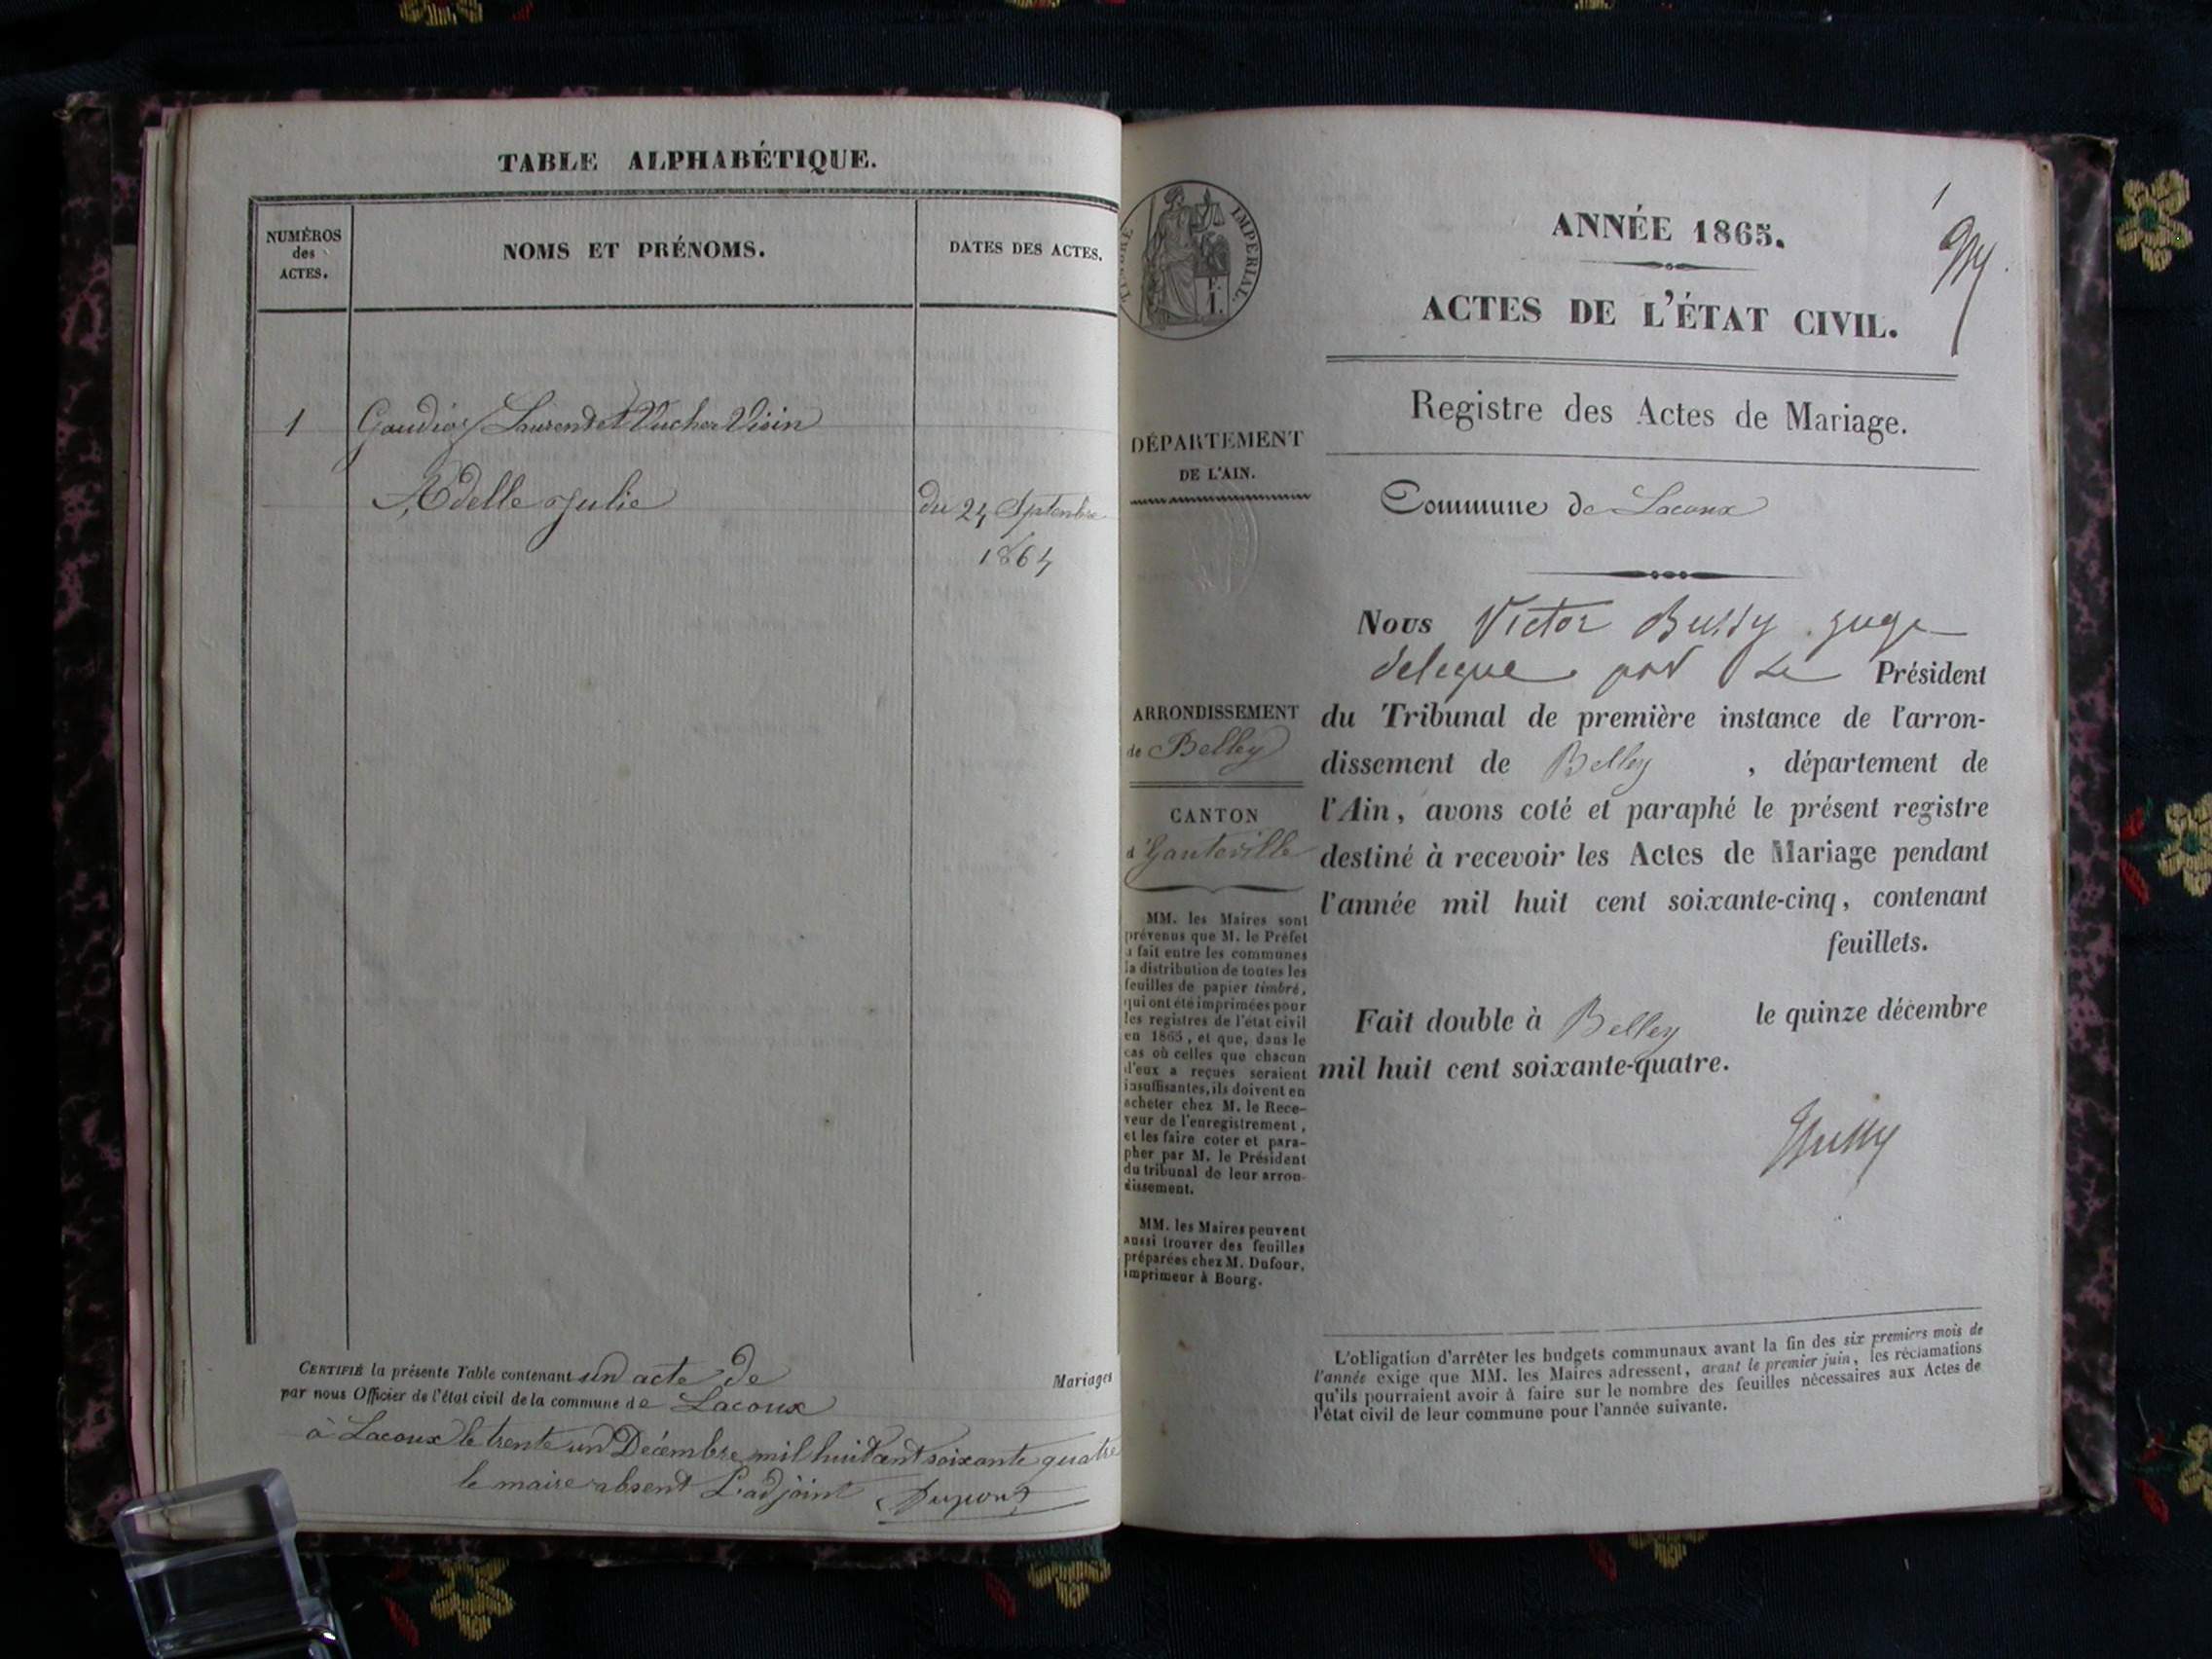 TABLE ALPHABÉTIQUE.
NUMÉROS
des
ACTES.
NOMS ET PRÉNOMS.
DATES DES ACTES.
1 Laurent et Vucher Visin
Adelle Julie
du 24 Septembre
1864
CERTIFIÉ la présente Table contenant un acte de
Mariages
par nous Officier de l'état civil de la commune de Lacoux
à Lacoux le trente un Décembre mil huit cent soixante quatre
le maire absent L'adjoint Dupont
1
TIMBRE IMPERIAL
F.
1.
ANNÉE 1865.
ACTES DE L'ÉTAT CIVIL.
Registre des Actes de Mariage.
DÉPARTEMENT
DE L'AIN.
Commune de Lacoux
ARRONDISSEMENT
de Belley
CANTON
d'Hauteville
MM. les Maires sont
prévenus que M. le Préfet
a fait entre les communes
la distribution de toutes les
feuilles de papier timbré,
qui ont été imprimées pour
les registres de l'état civil
en 1865, et que, dans le
cas où celles que chacun
d'eux a reçues seraient
insuffisantes, ils doivent en
acheter chez M. le Rece-
veur de l'enregistrement,
et les faire coter et para-
pher par M. le Président
du tribunal de leur arron-
dissement.
MM. les Maires peuvent
aussi trouver des feuilles
préparées chez M. Dufour,
imprimeur à Bourg.
Nous Victor Bussy juge
delegue par Le Président
du Tribunal de première instance de l'arron-
dissement de Belley , département de
l'Ain, avons coté et paraphé le présent registre
destiné à recevoir les Actes de Mariage pendant
l'année mil huit cent soixante-cinq, contenant
feuillets.
Fait double à Belley le quinze décembre
mil huit cent soixante-quatre.
Bussy
L'obligation d'arrêter les budgets communaux avant la fin des six premiers mois de
l'année exige que MM. les Maires adressent, avant le premier juin, les réclamations
qu'ils pourraient avoir à faire sur le nombre des feuilles nécessaires aux Actes de
l'état civil de leur commune pour l'année suivante.